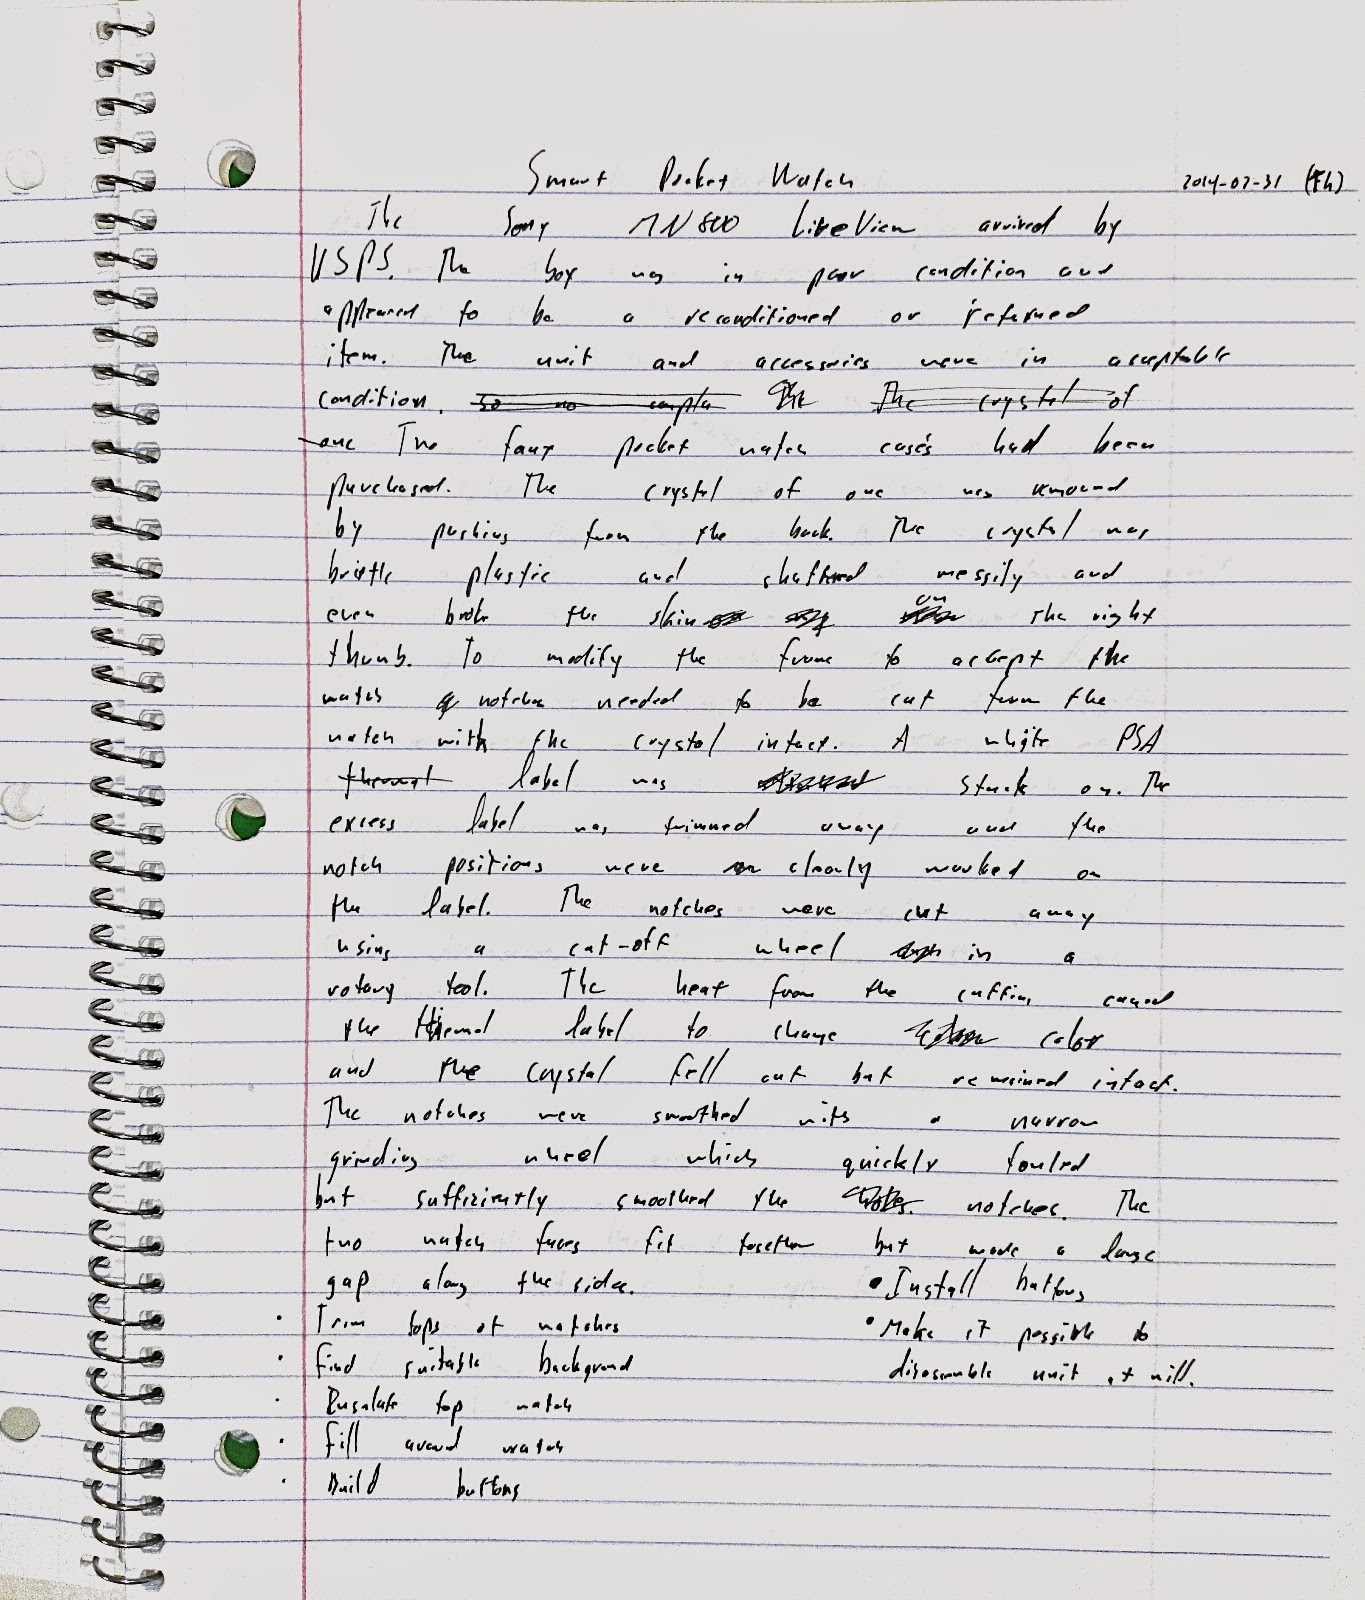 Smart Pocket Watch 2014-07-31 (Th)
The Sony MN800 LiveView arrived by
USPS. The box was in poor condition and
appeared to be a reconditioned or returned
item. The unit and accessories were in acceptable
condition. so no The crystal of
one Two faux pocket watch cases had been
purchased. The crystal of one was removed
by pushing from the back. The crystal was
brittle plastic and shattered messily and
even broke the skin on the right
thumb. To modify the frame to accept the
watch notches needed to be cut from the
watch with the crystal intact. A white PSA
thermal label was stuck on. The
excess label was trimmed away and the
notch positions were clearly marked on
the label. The notches were cut away
using a cut-off wheel in a
rotary tool. The heat from the cutting caused
the thermal label to change color
and the crystal fell out but remained intact.
The notches were smoothed with a narrow
grinding wheel which quickly fouled
but sufficiently smoothed the notches. The
two watch faces fit together but made a large
gap along the side.
• Trim tops of notches
• Find suitable background
• Insulate top watch
• Fill around watch
• Build buttons
• Install buttons
• Make it possible to
disassemble unit at will.